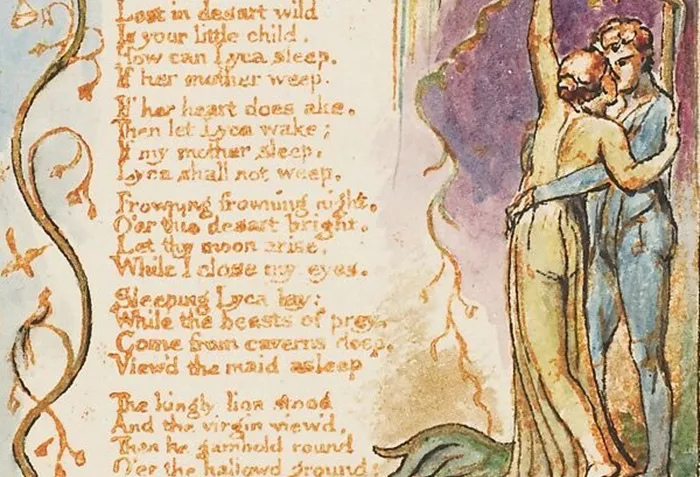 Lost in desart wild
Is your little child.
How can Lyca sleep.
If her mother weep.
If her heart does ake.
Then let Lyca wake;
If my mother sleep.
Lyca shall not weep.
Frowning frowning night.
O'er this desart bright.
Let thy moon arise.
While I close my eyes.
Sleeping Lyca lay:
While the beasts of prey.
Come from caverns deep.
View'd the maid asleep
The kingly lion stood
And the virgin view'd.
Then he gambold round
O'er the hallowd ground: